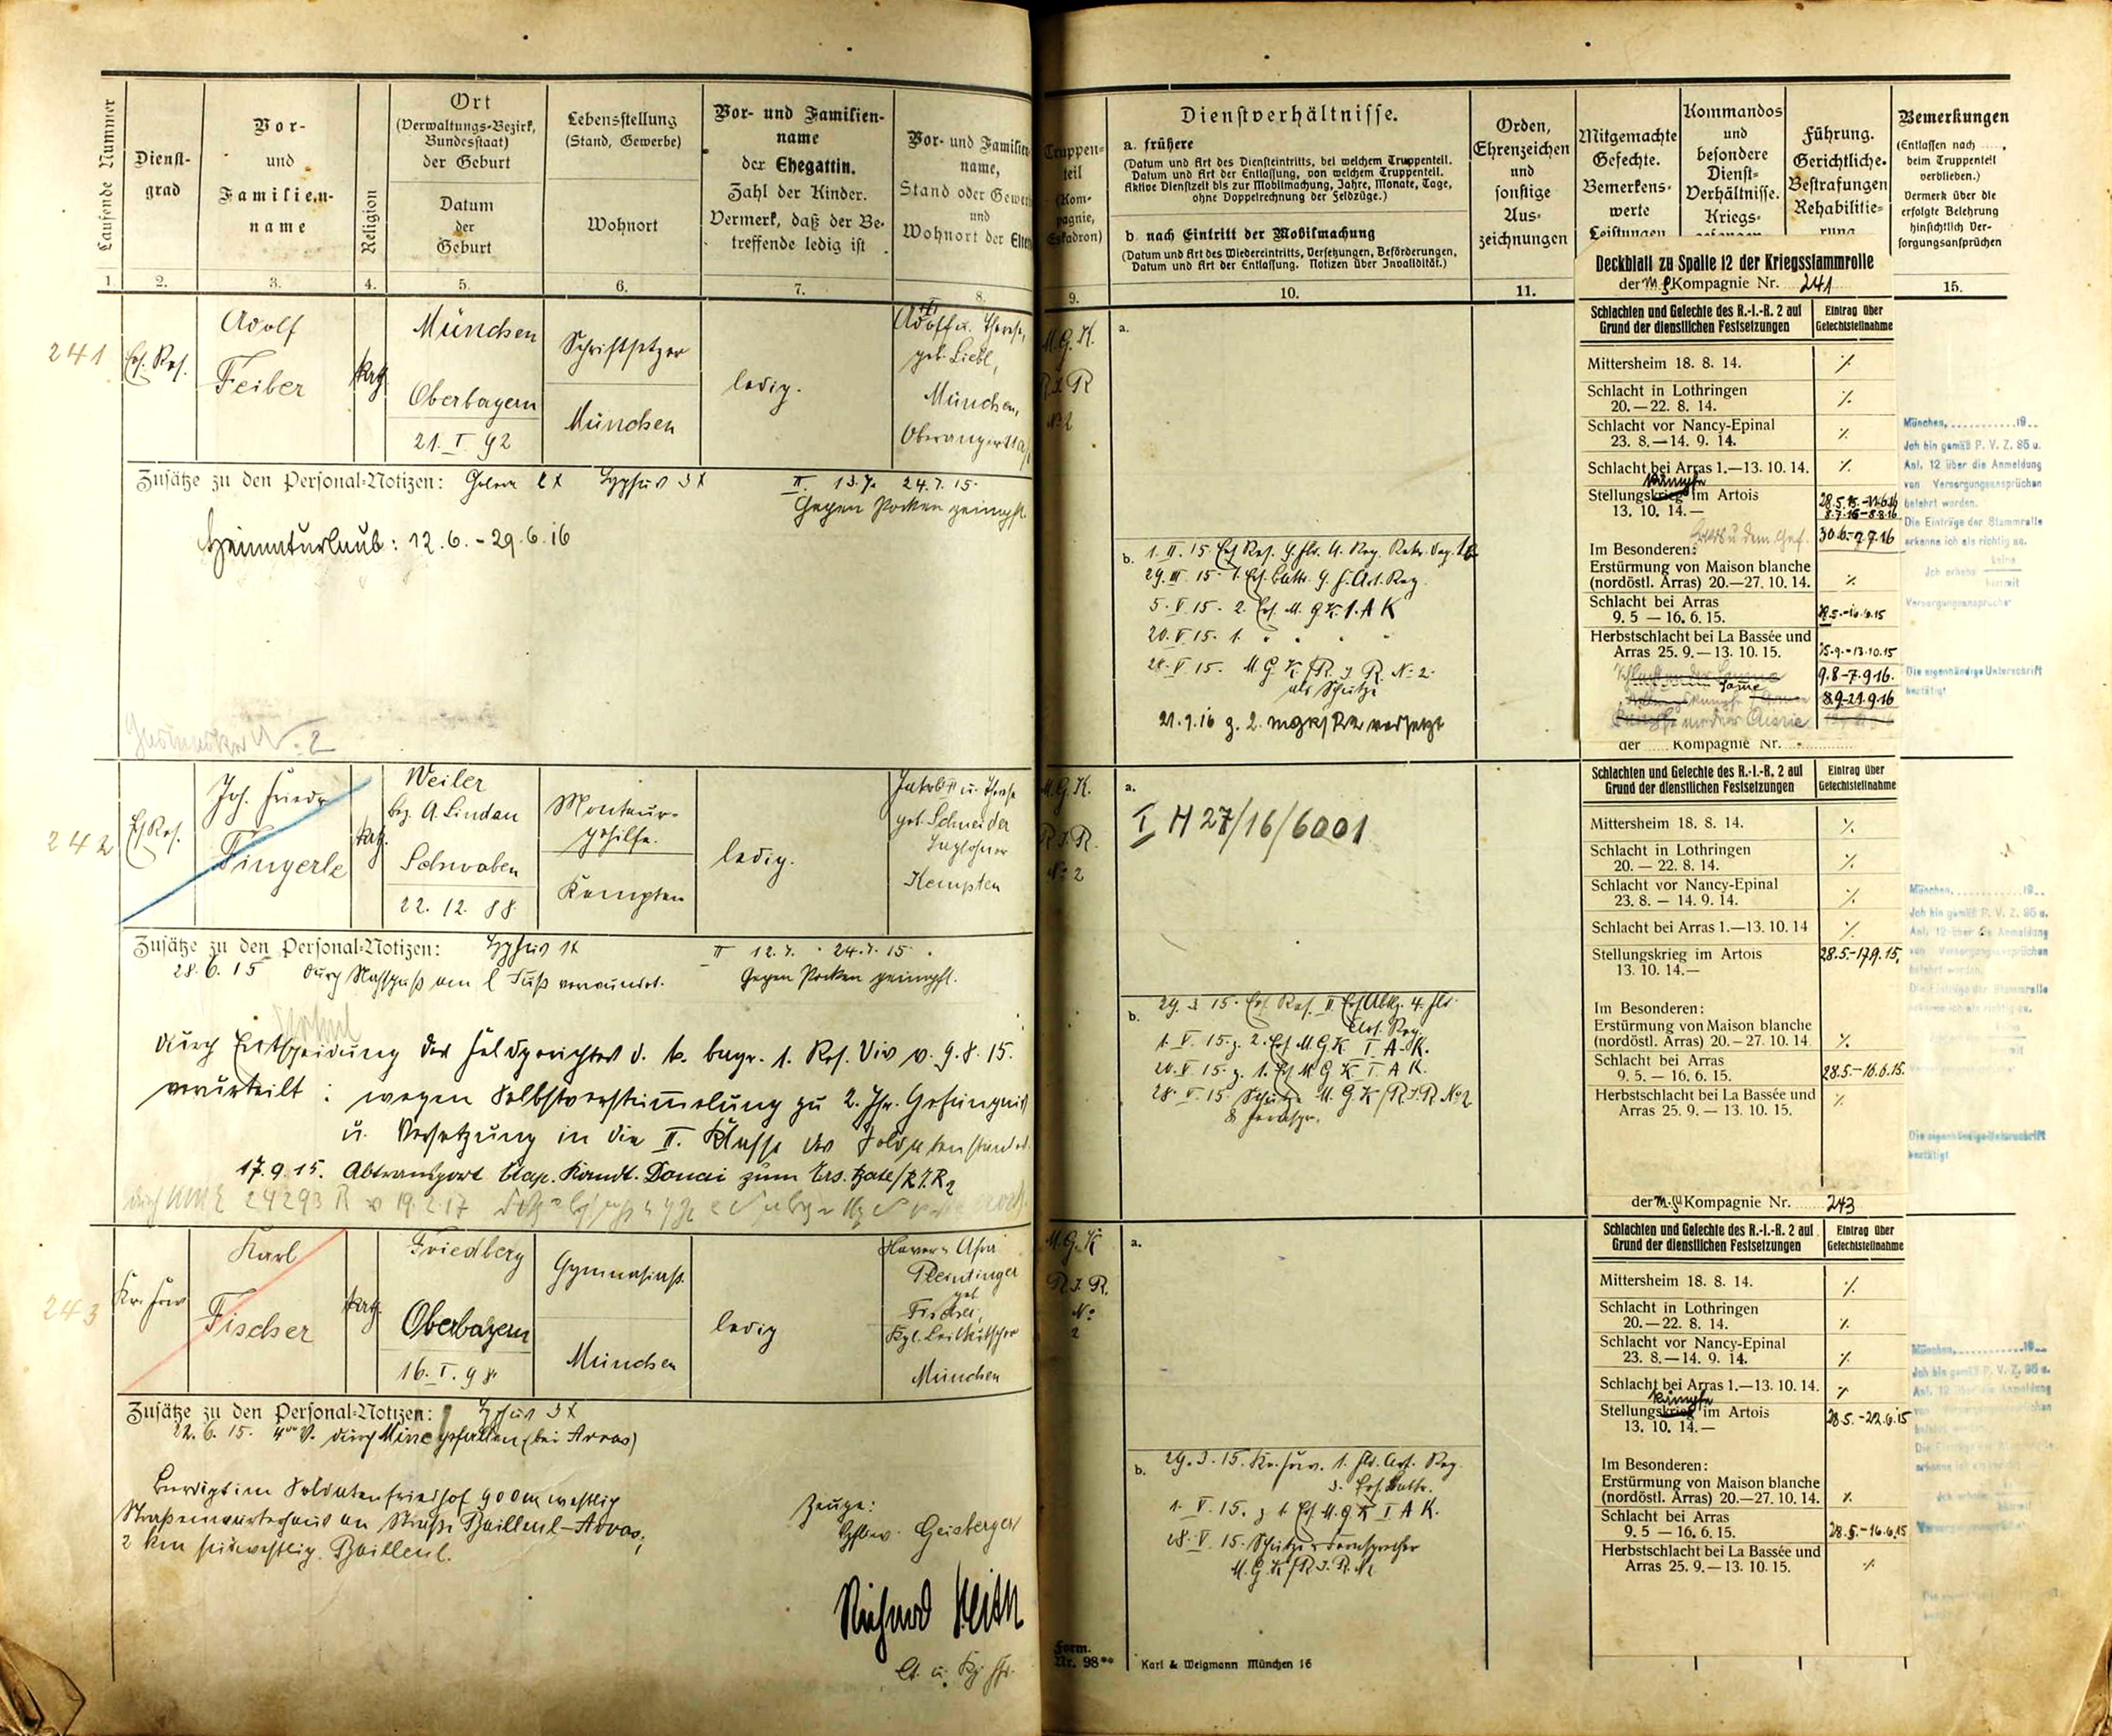 Laufende Nummer
Dienst-
grad
Vor-
und
Familien-
name
Religion
Ort
(Verwaltungs-Bezirk,
Bundesstaat)
der Geburt
Datum
der
Geburt
Lebensstellung
(Stand, Gewerbe)
Wohnort
Vor- und Familien-
name
der Ehegattin.
Zahl der Kinder.
Vermerk, daß der Be-
treffende ledig ist
Vor- und Familien-
name,
Stand oder Gewer
und
Wohnort der Elter
1
2.
3.
4.
5.
6.
7.
8.
241
Ers. Res.
Adolf
Feiber
kath.
München
Oberbayern
21. I 92
Schriftsetzer
München
ledig.
Adolf u. Therese,
geb. Liebl,
München,
Oberanger
Zusätze zu den Personal-Notizen: Cholera 2x Typhus 3x
II. 13.7. 24.7.15.
Gegen Pocken geimpft.
Heimaturlaub: 12.6. - 29.6.16
242
Ers. Res.
Joh. Friedr.
Fingerle
kath.
Weiler
bez. A. Lindau
Schwaben
22. 12. 88
Monteur-
gehilfe.
Kempten
ledig.
Jakob u. Therese
geb. Schneider
Taglöhner
Kempten
Zusätze zu den Personal-Notizen: Typhus 1x
II 12.7. 24.7.15.
28.6.15 durch am l. Fuß verwundet.
Gegen Pocken geimpft.
durch Entscheidung des Feldgerichtes d. k. bayr. 1. Res. Div v. 9.8.15.
verurteilt: wegen Selbstverstümmelung zu 2. Jhr. Gefängnis
u. Versetzung in die II. Klasse des Soldatenstandes
17.9.15. Abtransport Etap. Komdt. Douai zum Ers. Batl/R.I.R 2
24293 R v 19.2.17
243
Kr. Frw
Karl
Fischer
kath.
Friedberg
Oberbayern
16. I. 98
Gymnasiast.
München
ledig
Xaver u. Afra
Pleintinger
geb.
Fischer,
Kgl. Leibkutscher
München
Zusätze zu den Personal-Notizen: Typhus 3x
22.6.15. 4 V. durch Mine gefallen (bei Arras)
Beerdigt im Soldatenfriedhof 900m westlich
Straßenwärterhaus an Straße Bailleul-Arras,
2 km südwestlich Bailleul.
Zeuge:
Geisberger
Richard
Lt. u. Kp. Fhr.
Truppen-
teil
(Kom-
pagnie,
Eskadron)
Dienstverhältnisse.
a. frühere
(Datum und Art des Diensteintritts, bei welchem Truppenteil.
Datum und Art der Entlassung, von welchem Truppenteil.
Aktive Dienstzeit bis zur Mobilmachung, Jahre, Monate, Tage,
ohne Doppelrechnung der Feldzüge.)
b. nach Eintritt der Mobilmachung
(Datum und Art des Wiedereintritts, Versetzungen, Beförderungen,
Datum und Art der Entlassung. Notizen über Invalidität.)
Orden,
Ehrenzeichen
und
sonstige
Aus-
zeichnungen
Mitgemachte
Gefechte.
Bemerkens-
werte
Leistungen
Kommandos
und
besondere
Dienst-
Verhältnisse.
Kriegs-
gefangen
Führung.
Gerichtliche.
Bestrafungen
Rehabilitie-
rung
Bemerkungen
(Entlassen nach ......,
beim Truppenteil
verblieben.)
Vermerk über die
erfolgte Belehrung
hinsichtlich Ver-
sorgungsansprüchen
9.
10.
11.
15.
M.G.K.
R.I.R
No 2
a.
b. 1. II. 15 Ers. Res.
29. III. 15.
5. V. 15. 2. Ers. M.G.K. 1. A K
20. V. 15. 1. " " "
28. V. 15. M.G.K./R.I.R. No 2
als Schütze
21.9.16 z. 2. MGK/R2 versetzt
Deckblatt zu Spalte 12 der Kriegsstammrolle
der M.G. Kompagnie Nr. 241
Schlachten und Gefechte des R.-I.-R. 2 auf
Grund der dienstlichen Festsetzungen
Eintrag über
Gefechtsteilnahme
Mittersheim 18. 8. 14. ٪
Schlacht in Lothringen
20.—22. 8. 14. ٪
Schlacht vor Nancy-Epinal
23. 8.—14. 9. 14. ٪
Schlacht bei Arras 1.—13. 10. 14. ٪
kämpfe
Stellungskrieg im Artois
13. 10. 14.—
Im Besonderen: 30.6.-7.7.16
Erstürmung von Maison blanche
(nordöstl. Arras) 20.—27. 10. 14. ٪
Schlacht bei Arras
9. 5 — 16. 6. 15. 28.5.-16.6.15
Herbstschlacht bei La Bassée und
Arras 25. 9.— 13. 10. 15. 25.9.-13.10.15
9.8-7.9.16.
8.9-21.9.16
München, ............19..
Ich bin gemäß P. V. Z. 85 u.
Anl. 12 über die Anmeldung
von Versorgungsansprüchen
belehrt worden.
Die Einträge der Stammrolle
erkenne ich als richtig an.
Ich erhebe keine
hiermit
Versorgungsansprüche
Die eigenhändige Unterschrift
bestätigt
M.G.K.
R.I.R.
No 2
a.
I H 27/16/6001
b. 29. 3. 15. Ers. Res. II Ers. Abtlg. 4. Fld.
Art. Reg.
1. V. 15. z. 2. Ers. M.G.K. I A.K.
20. V. 15. z. 1. Ers. M.G.K. I A.K.
28. V. 15. Schütze M.G.K./R.I.R No 2
der ...... Kompagnie Nr. ............
Schlachten und Gefechte des R.-I.-R. 2 auf
Grund der dienstlichen Festsetzungen
Eintrag über
Gefechtsteilnahme
Mittersheim 18. 8. 14. ٪
Schlacht in Lothringen
20. — 22. 8. 14. ٪
Schlacht vor Nancy-Epinal
23. 8. — 14. 9. 14. ٪
Schlacht bei Arras 1.—13. 10. 14 ٪
Stellungskrieg im Artois 28.5.-17.9.15.
13. 10. 14.—
Im Besonderen:
Erstürmung von Maison blanche
(nordöstl. Arras) 20.— 27. 10. 14 ٪
Schlacht bei Arras
9. 5. — 16. 6. 15. 28.5.-16.6.15.
Herbstschlacht bei La Bassée und
Arras 25. 9. — 13. 10. 15. ٪
M.G.K
R.I.R.
No
2
a.
b. 29. 3. 15. Kr. Frw. 1. Fld. Art. Reg.
3. Ers. Battr.
1. V. 15. z 1. Ers. M.G.K I A K.
28. V. 15. Schütze u. Fernsprecher
M.G.K/R.I.R. No 2
der M.G. Kompagnie Nr. 243
Schlachten und Gefechte des R.-I.-R. 2 auf
Grund der dienstlichen Festsetzungen
Eintrag über
Gefechtsteilnahme
Mittersheim 18. 8. 14. ٪
Schlacht in Lothringen
20.—22. 8. 14. ٪
Schlacht vor Nancy-Epinal
23. 8.—14. 9. 14. ٪
Schlacht bei Arras 1.—13. 10. 14. ٪
kämpfe
Stellungskrieg im Artois 28.5.-22.6.15
13. 10. 14.—
Im Besonderen:
Erstürmung von Maison blanche
(nordöstl. Arras) 20.—27. 10. 14. ٪
Schlacht bei Arras
9. 5 — 16. 6. 15. 28.5.-16.6.15
Herbstschlacht bei La Bassée und
Arras 25. 9.— 13. 10. 15. ٪
Form.
Nr. 98**
Karl & Weigmann München 16